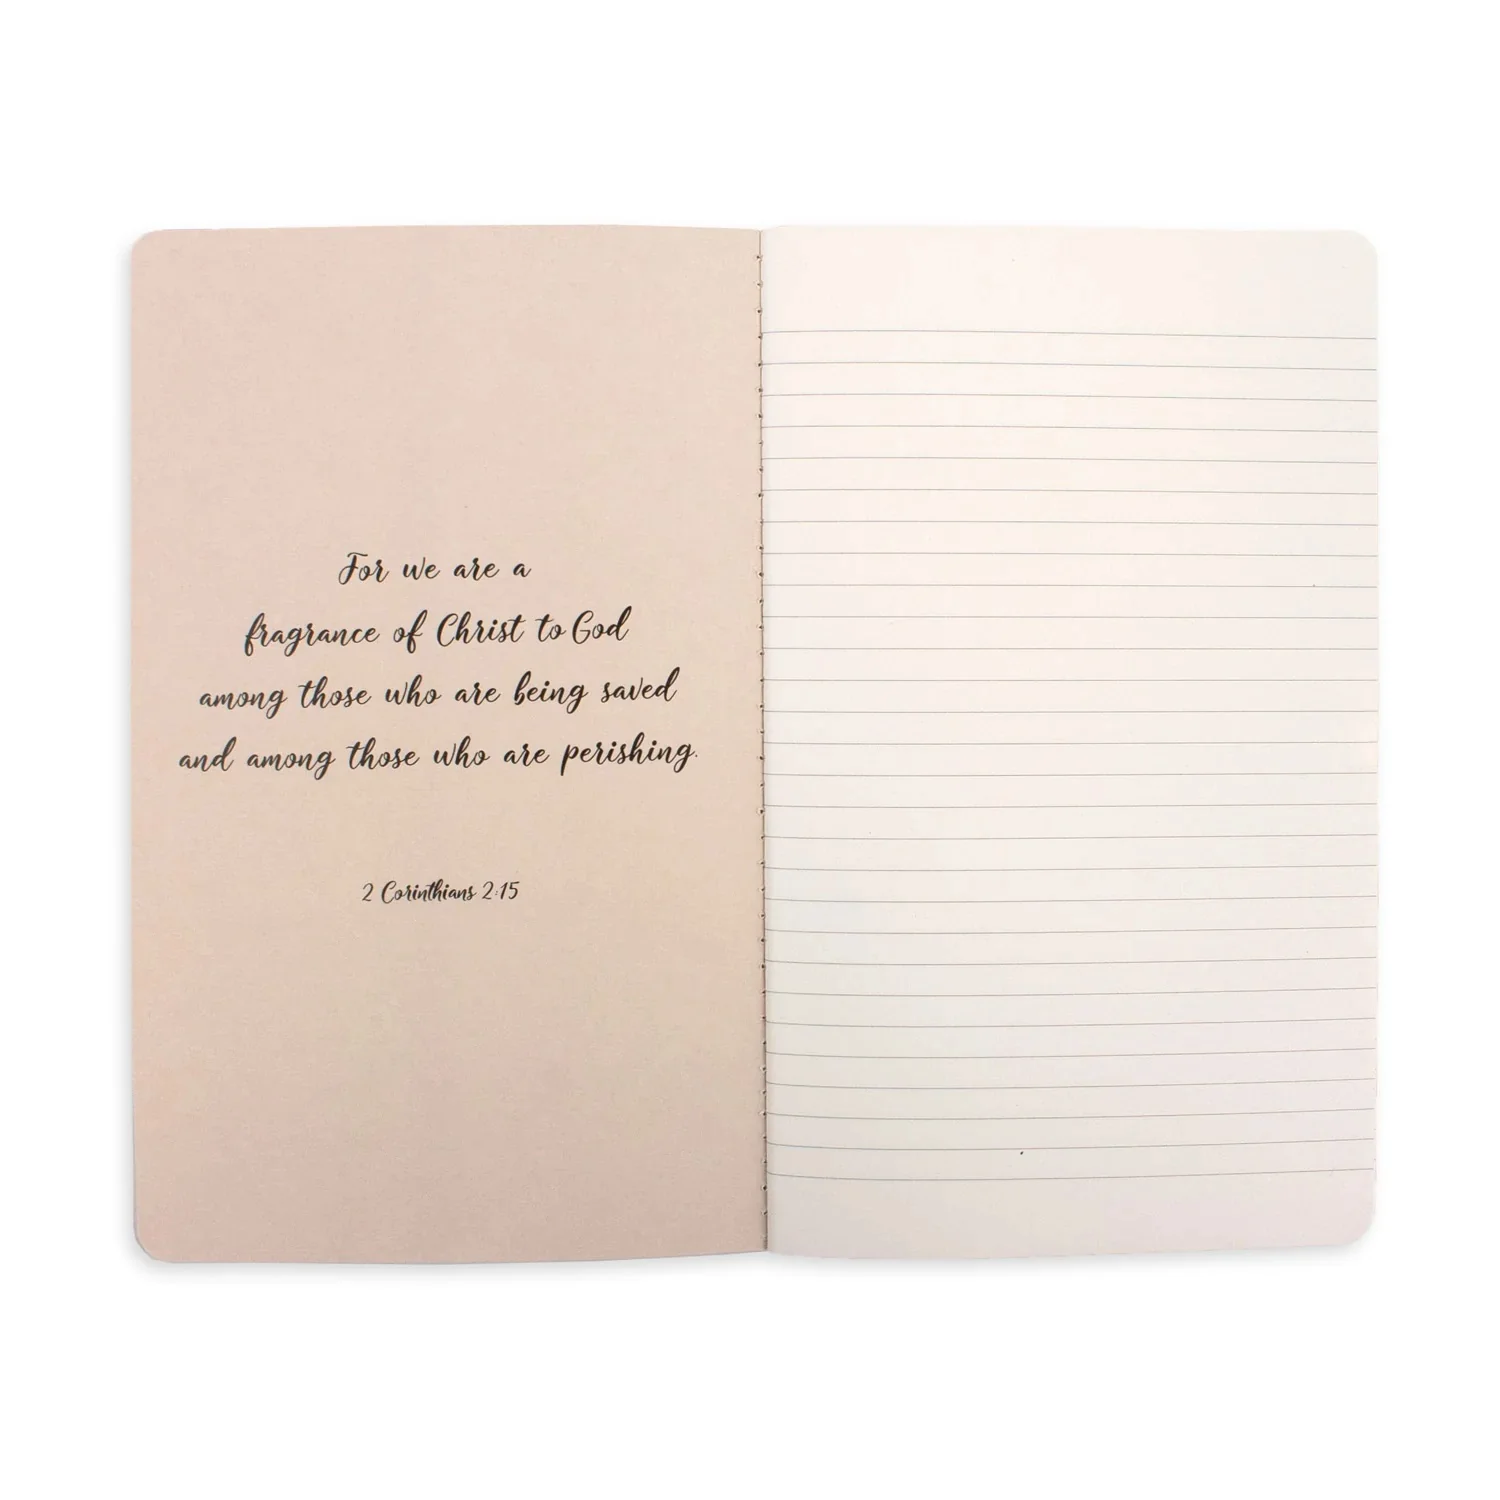 For we are a
fragrance of Christ to God
among those who are being saved
and among those who are perishing.
2 Corinthians 2:15